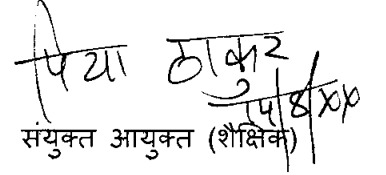 पिया ठाकुर
14/8/XX
संयुक्त आयुक्त (शैक्षिक)